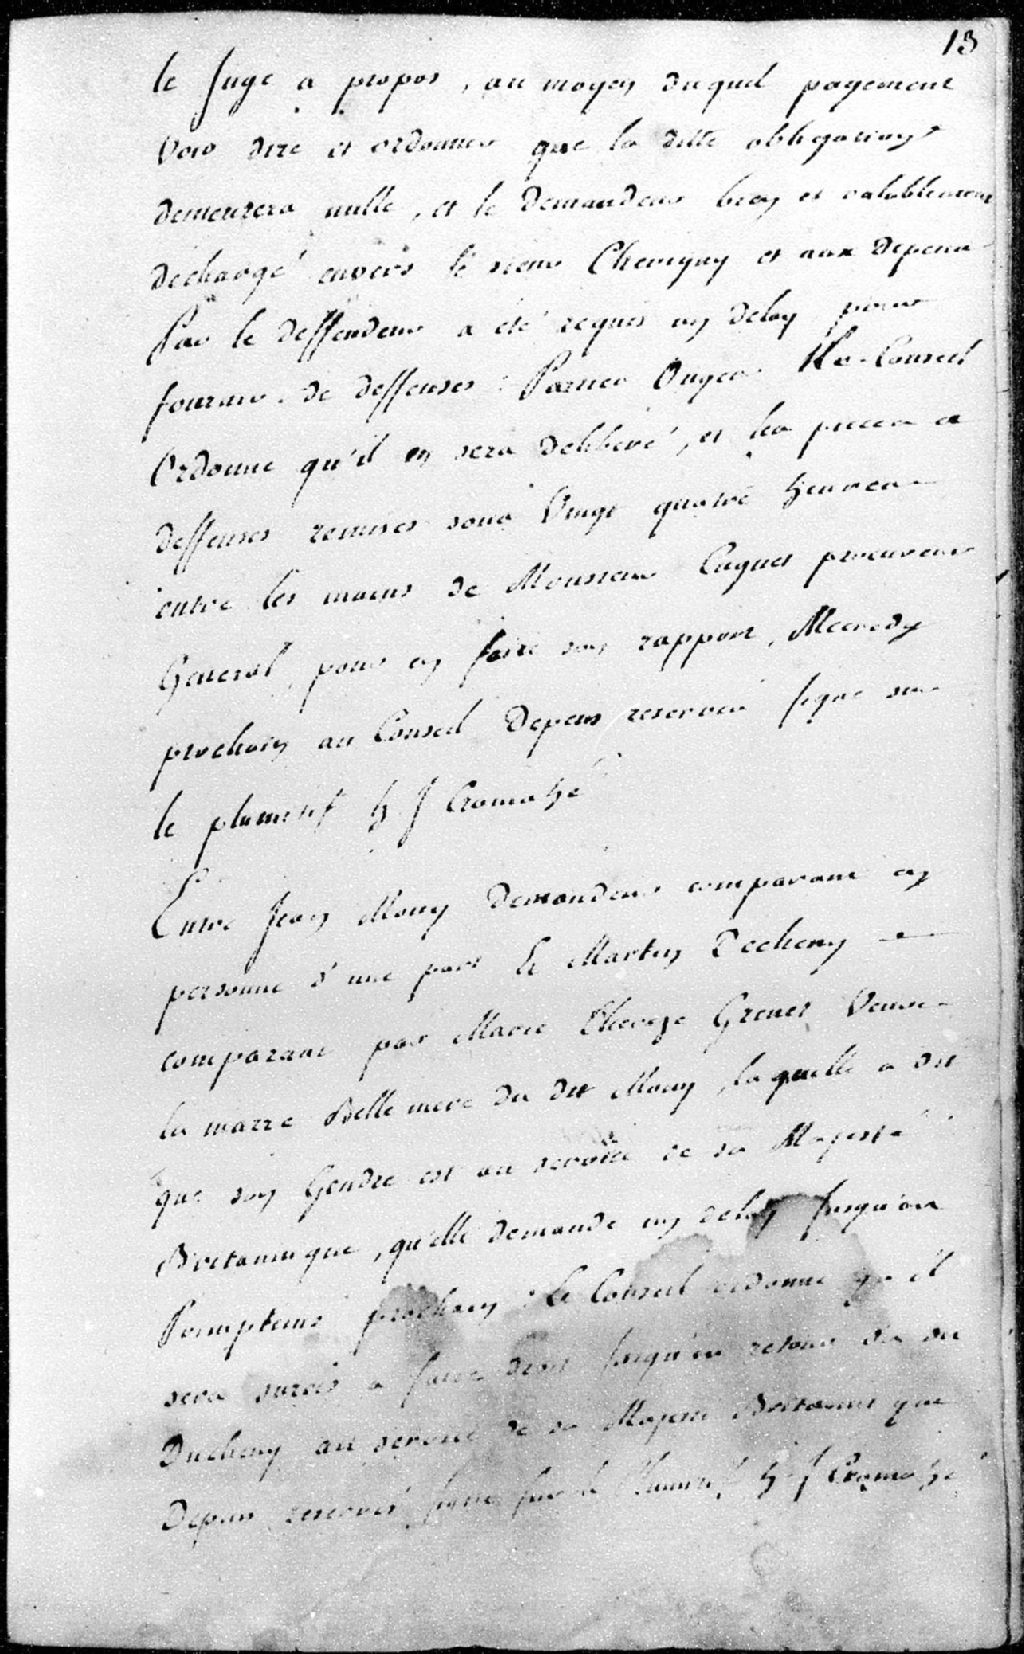 13
le Juge a propos, au moyen duquel payement
voir dire et ordonner que la ditte obligation
demeurera nulle, et le demandeur bien et valablement
dechargé envers le sieur Chevigny et aux depens
Par le deffendeur a été requis un delay pour
fournir de deffenses. Parties Ouyes Le Conseil
Ordonne qu'il en sera deliberé, et les pieces et
deffenses remises sous Vingt quatre heures
entre les mains de Monsieur Cugnet procureur
General, pour en faire son rapport, Mecredy
prochain au Conseil Depens reservés signé sur
le plumitif H J Cramahé
Entre Jean Mouy Demandeur comparant en
personne d'une part Et Martin Decheny
comparant par Marie Therese Grenet Veuve
la marre Belle mere du dit Mouy, laquelle a dit
que son Gendre est au service de sa Majesté
Britannique, qu'elle demande un delay jusqu'au
Pringtems prochain : Le Conseil ordonne qu'il
sera surcis a faire droit jusqu'au retour du dit
Ducheny au service de sa Majesté Britannique
Depens reservés signé sur le Plumitif H J Cramahé